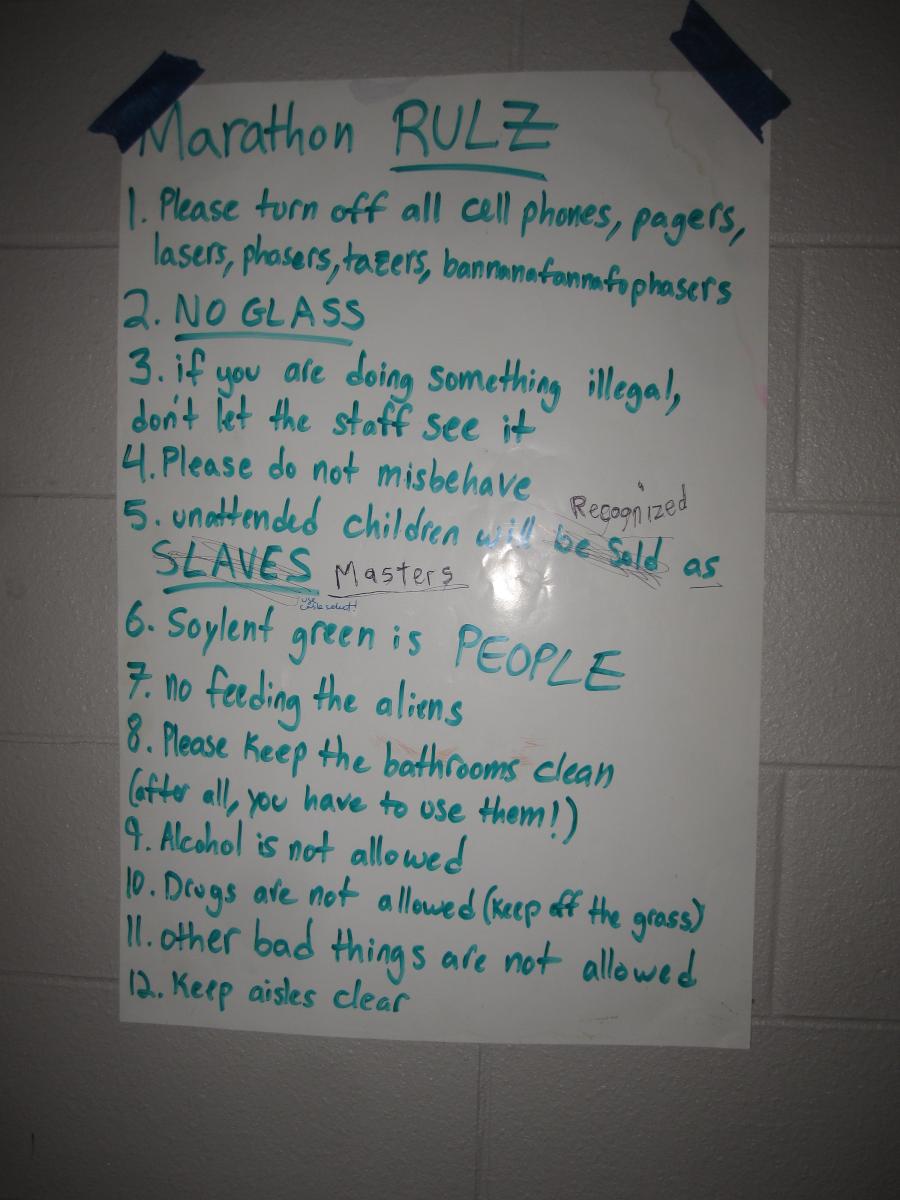 Marathon RULZ
1. Please turn off all cell phones, pagers,
lasers, phasers, tazers, bannanafannafophasers
2. NO GLASS
3. if you are doing something illegal,
don't let the staff see it
4. Please do not misbehave
Recognized
5. unattended children will be Sold as
SLAVES Masters
use
6. Soylent green is PEOPLE
7. no feeding the aliens
8. Please Keep the bathrooms clean
(after all, you have to use them!)
9. Alcohol is not allowed
10. Drugs are not allowed (Keep off the grass)
11. other bad things are not allowed
12. Keep aisles clear